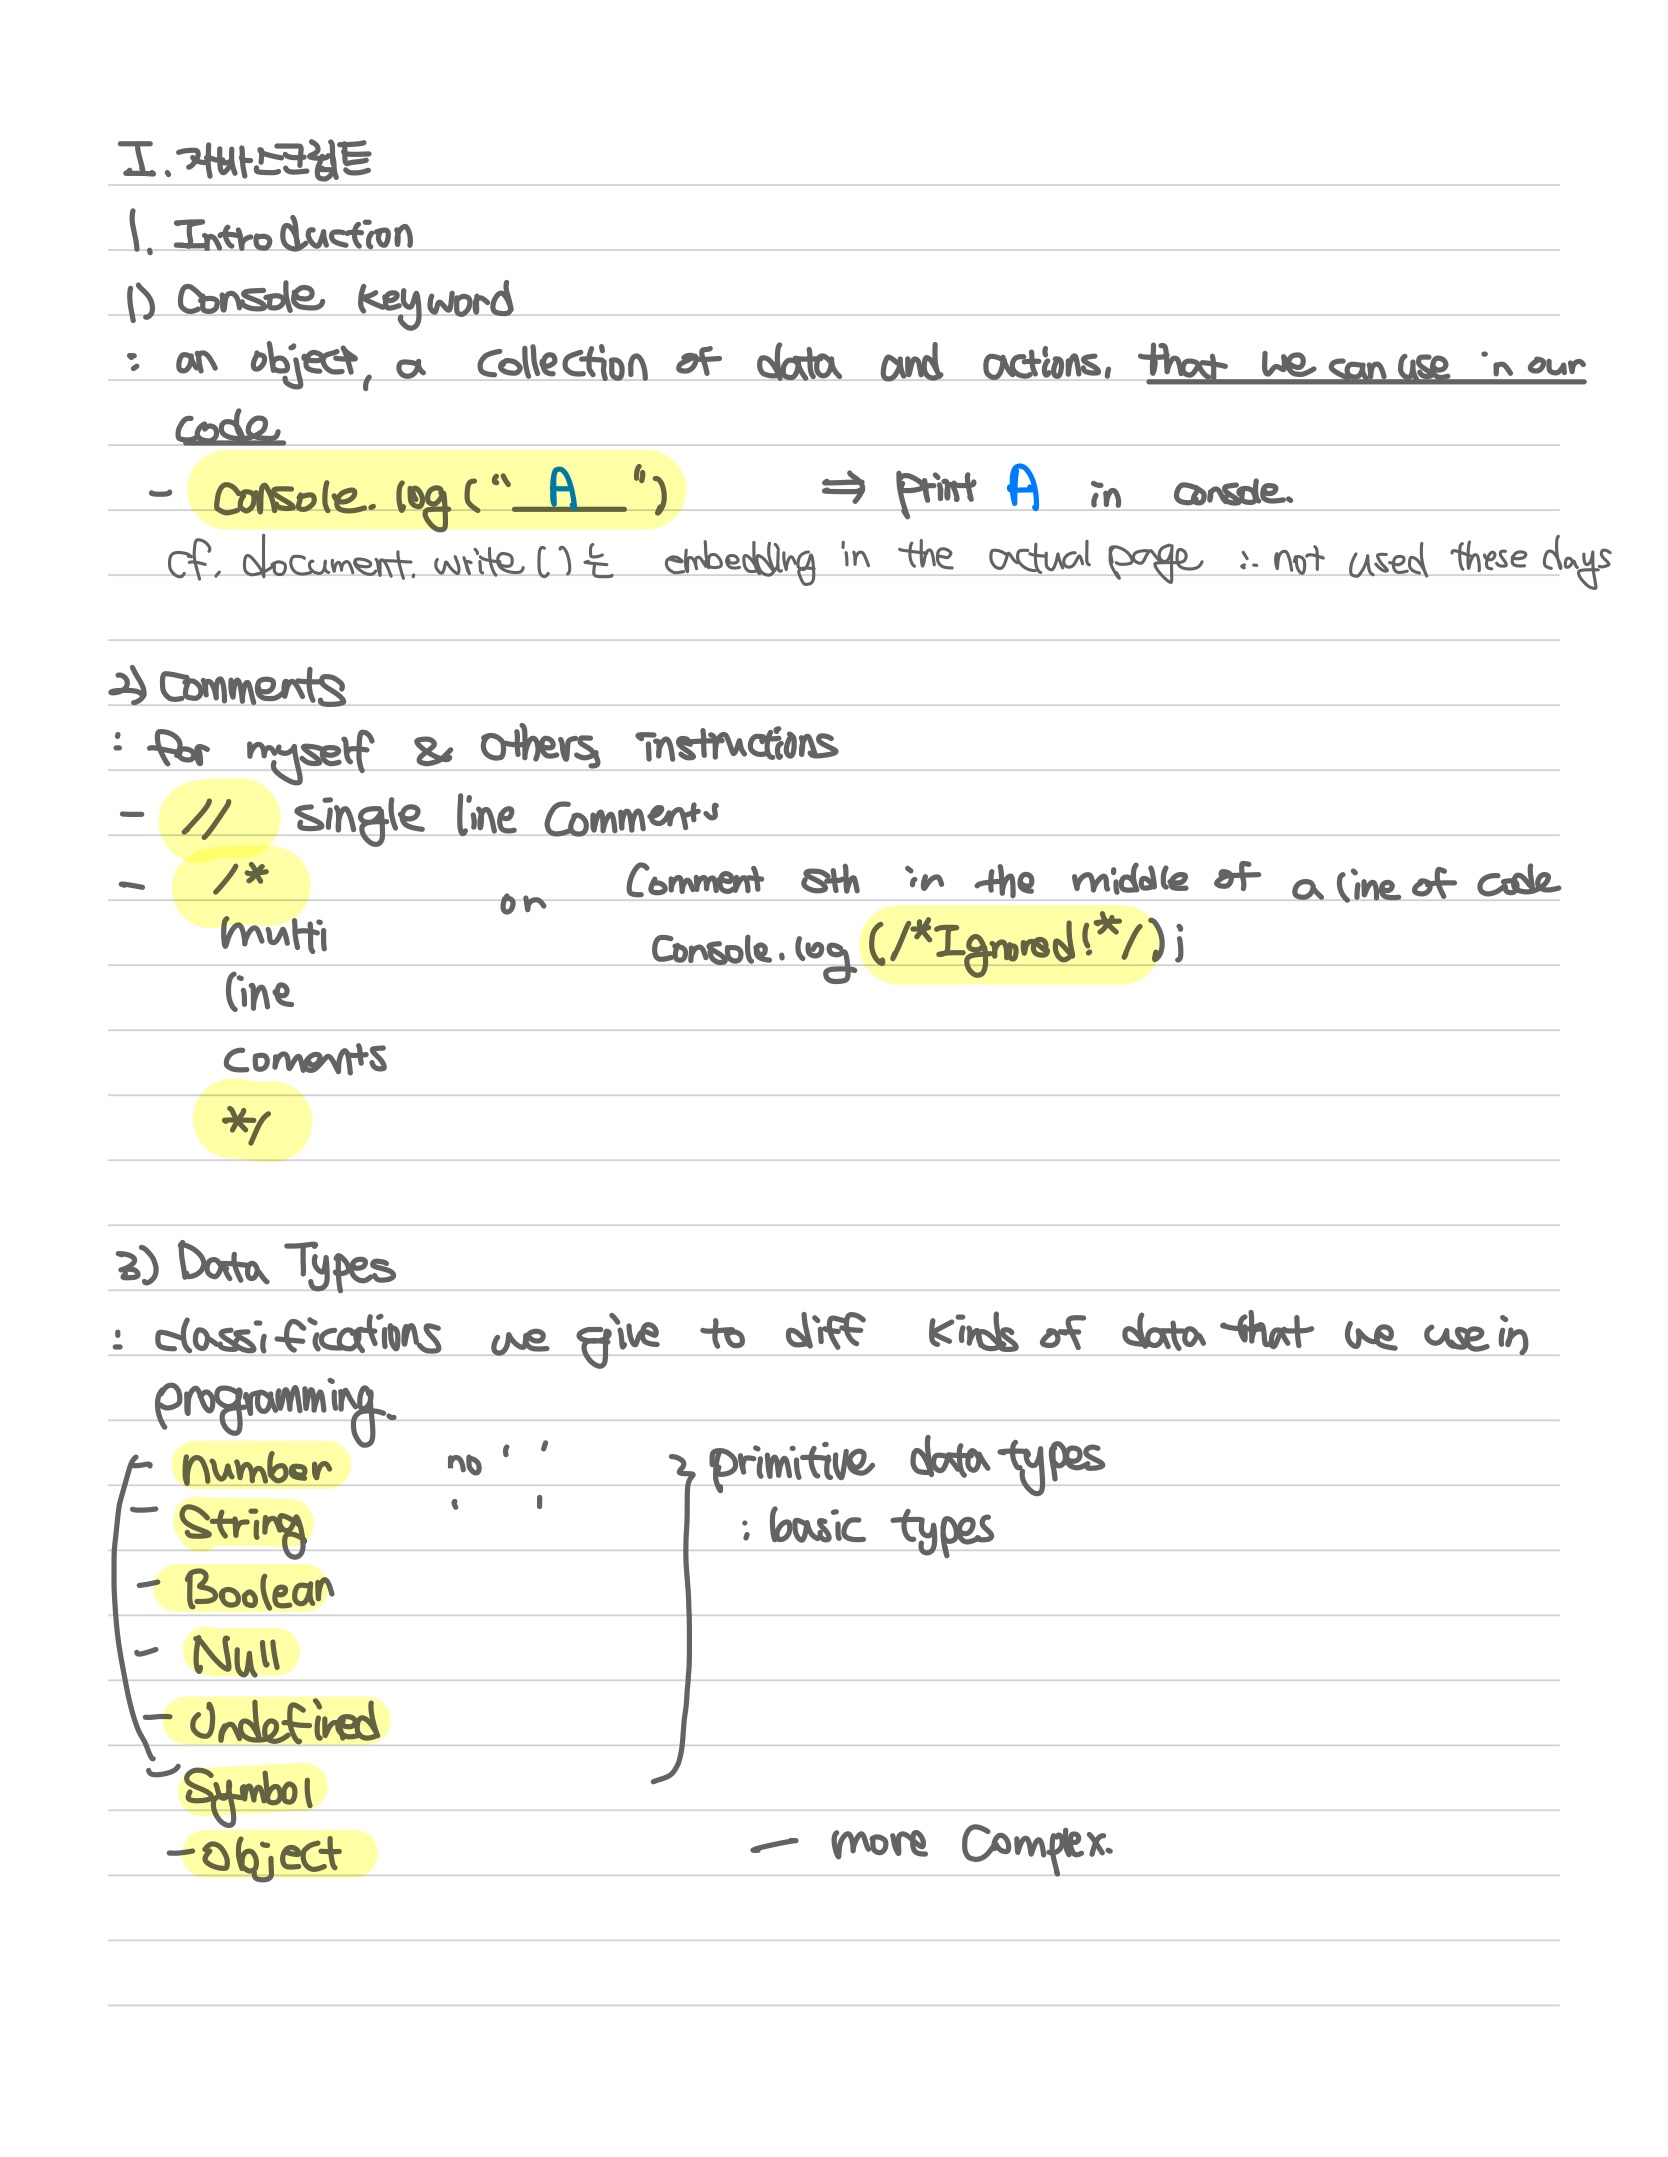 I. 자바스크립트
1. Introduction
1) Console keyword
: an object, a collection of data and actions, that we can use in our
code
- Console.log(“ A ”) ⇒ print A in console.
cf. document.write()는 embedding in the actual page ∴ not used these days
2) Comments
: for myself & others, instructions
- // single line Comments
- /* or Comment sth in the middle of a line of code
multi Console.log(/*Ignored!*/);
line
coments
*/
3) Data Types
: classifications we give to diff kinds of data that we use in
programming.
- number no ' ' primitive data types
- String ' ' : basic types
- Boolean
- Null
- Undefined
- Symbol
- Object - more Complex.